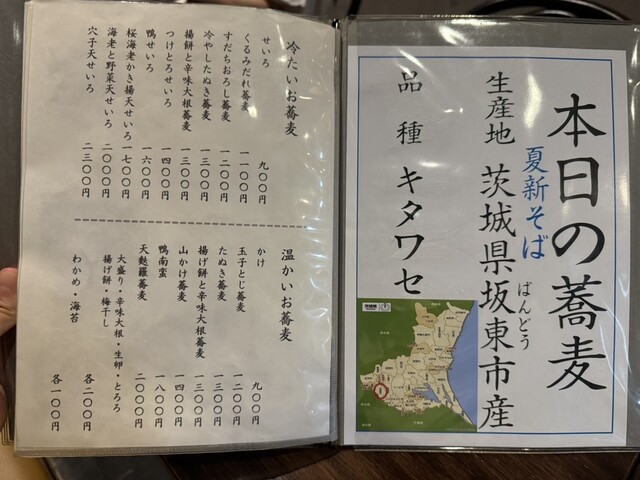 本日の蕎麦
夏新そば
生産地 茨城県坂東市産
ばんどう
品種 キタワセ
茨城県
冷たいお蕎麦
せいろ 九〇〇円
くるみだれ蕎麦 一一〇〇円
すだちおろし蕎麦 一二〇〇円
冷やしたぬき蕎麦 一三〇〇円
揚餅と辛味大根蕎麦 一三〇〇円
つけとろせいろ 一四〇〇円
鴨せいろ 一六〇〇円
桜海老かき揚天せいろ 一七〇〇円
海老と野菜天せいろ 二〇〇〇円
穴子天せいろ 二三〇〇円
温かいお蕎麦
かけ 九〇〇円
玉子とじ蕎麦 一二〇〇円
たぬき蕎麦 一二〇〇円
揚げ餅と辛味大根蕎麦 一三〇〇円
山かけ蕎麦 一四〇〇円
鴨南蛮 一八〇〇円
天麩羅蕎麦 二〇〇〇円
大盛り・辛味大根・生卵・とろろ
揚げ餅・梅干し 各二〇〇円
わかめ・海苔 各一〇〇円